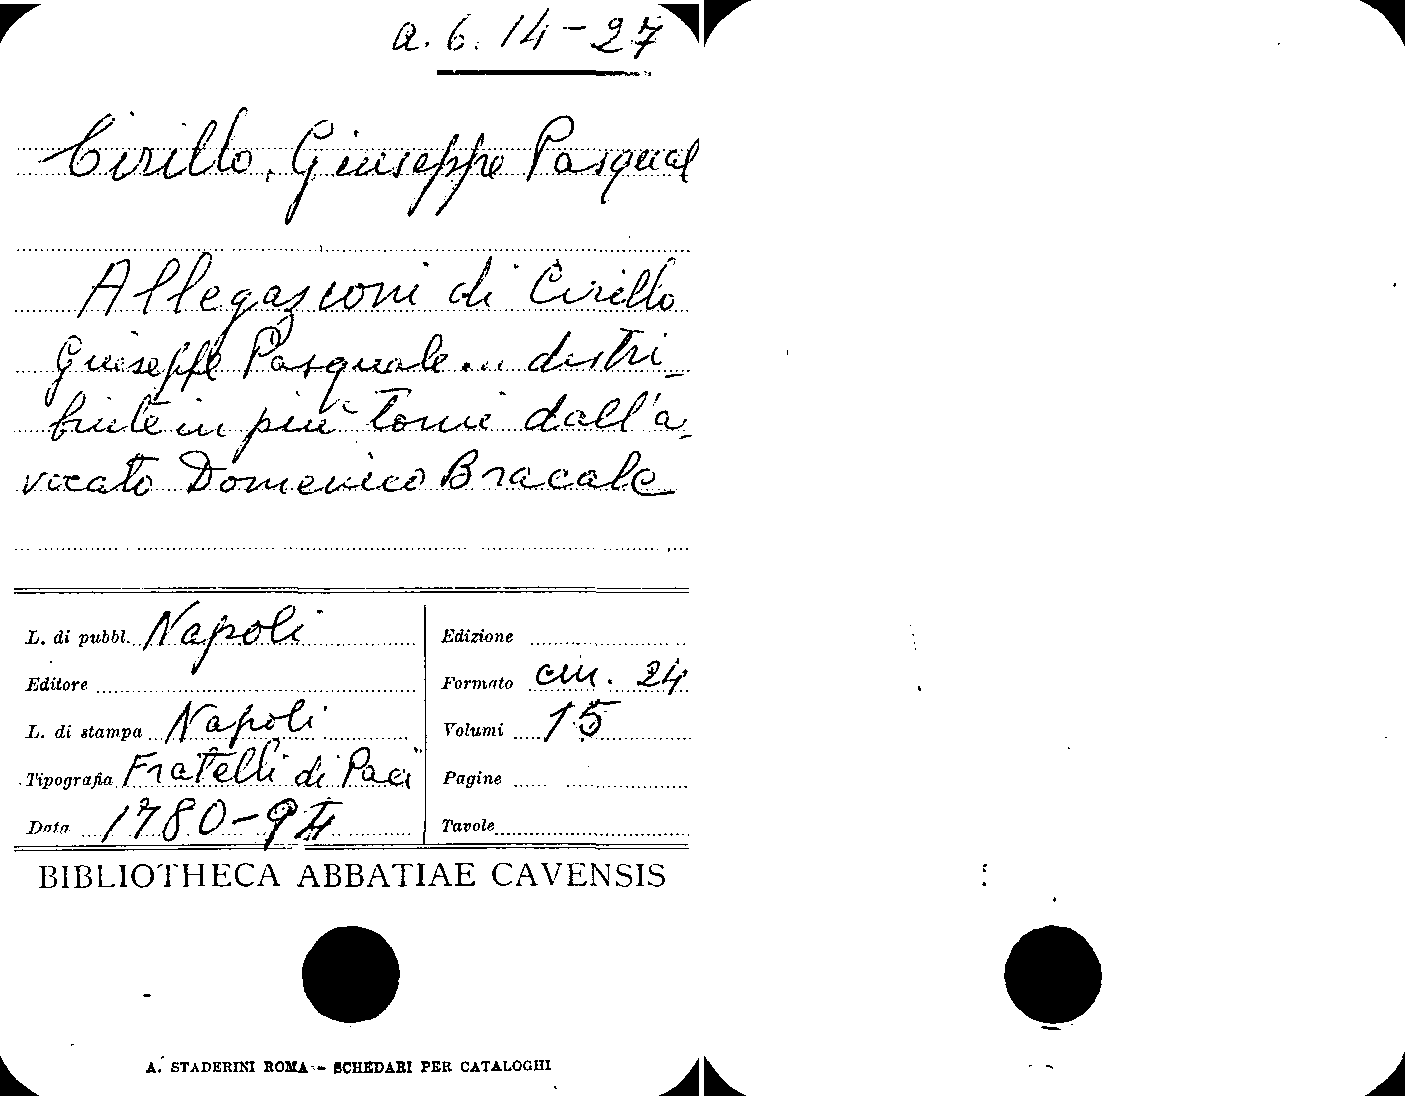 a. 6. 14-27
Cirillo, Giuseppe Pasqual
Allegazioni di Cirillo
Giuseppe Pasquale... distri-
buite in più tomi dall'a-
vvocato Domenico Bracale
L. di pubbl. Napoli
Editore
L. di stampa Napoli
Tipografia Fratelli di Paci
Data 1780-94
Edizione
Formato cm. 24
Volumi 15
Pagine
Tavole
BIBLIOTHECA ABBATIAE CAVENSIS
A. STADERINI ROMA - SCHEDARI PER CATALOGHI